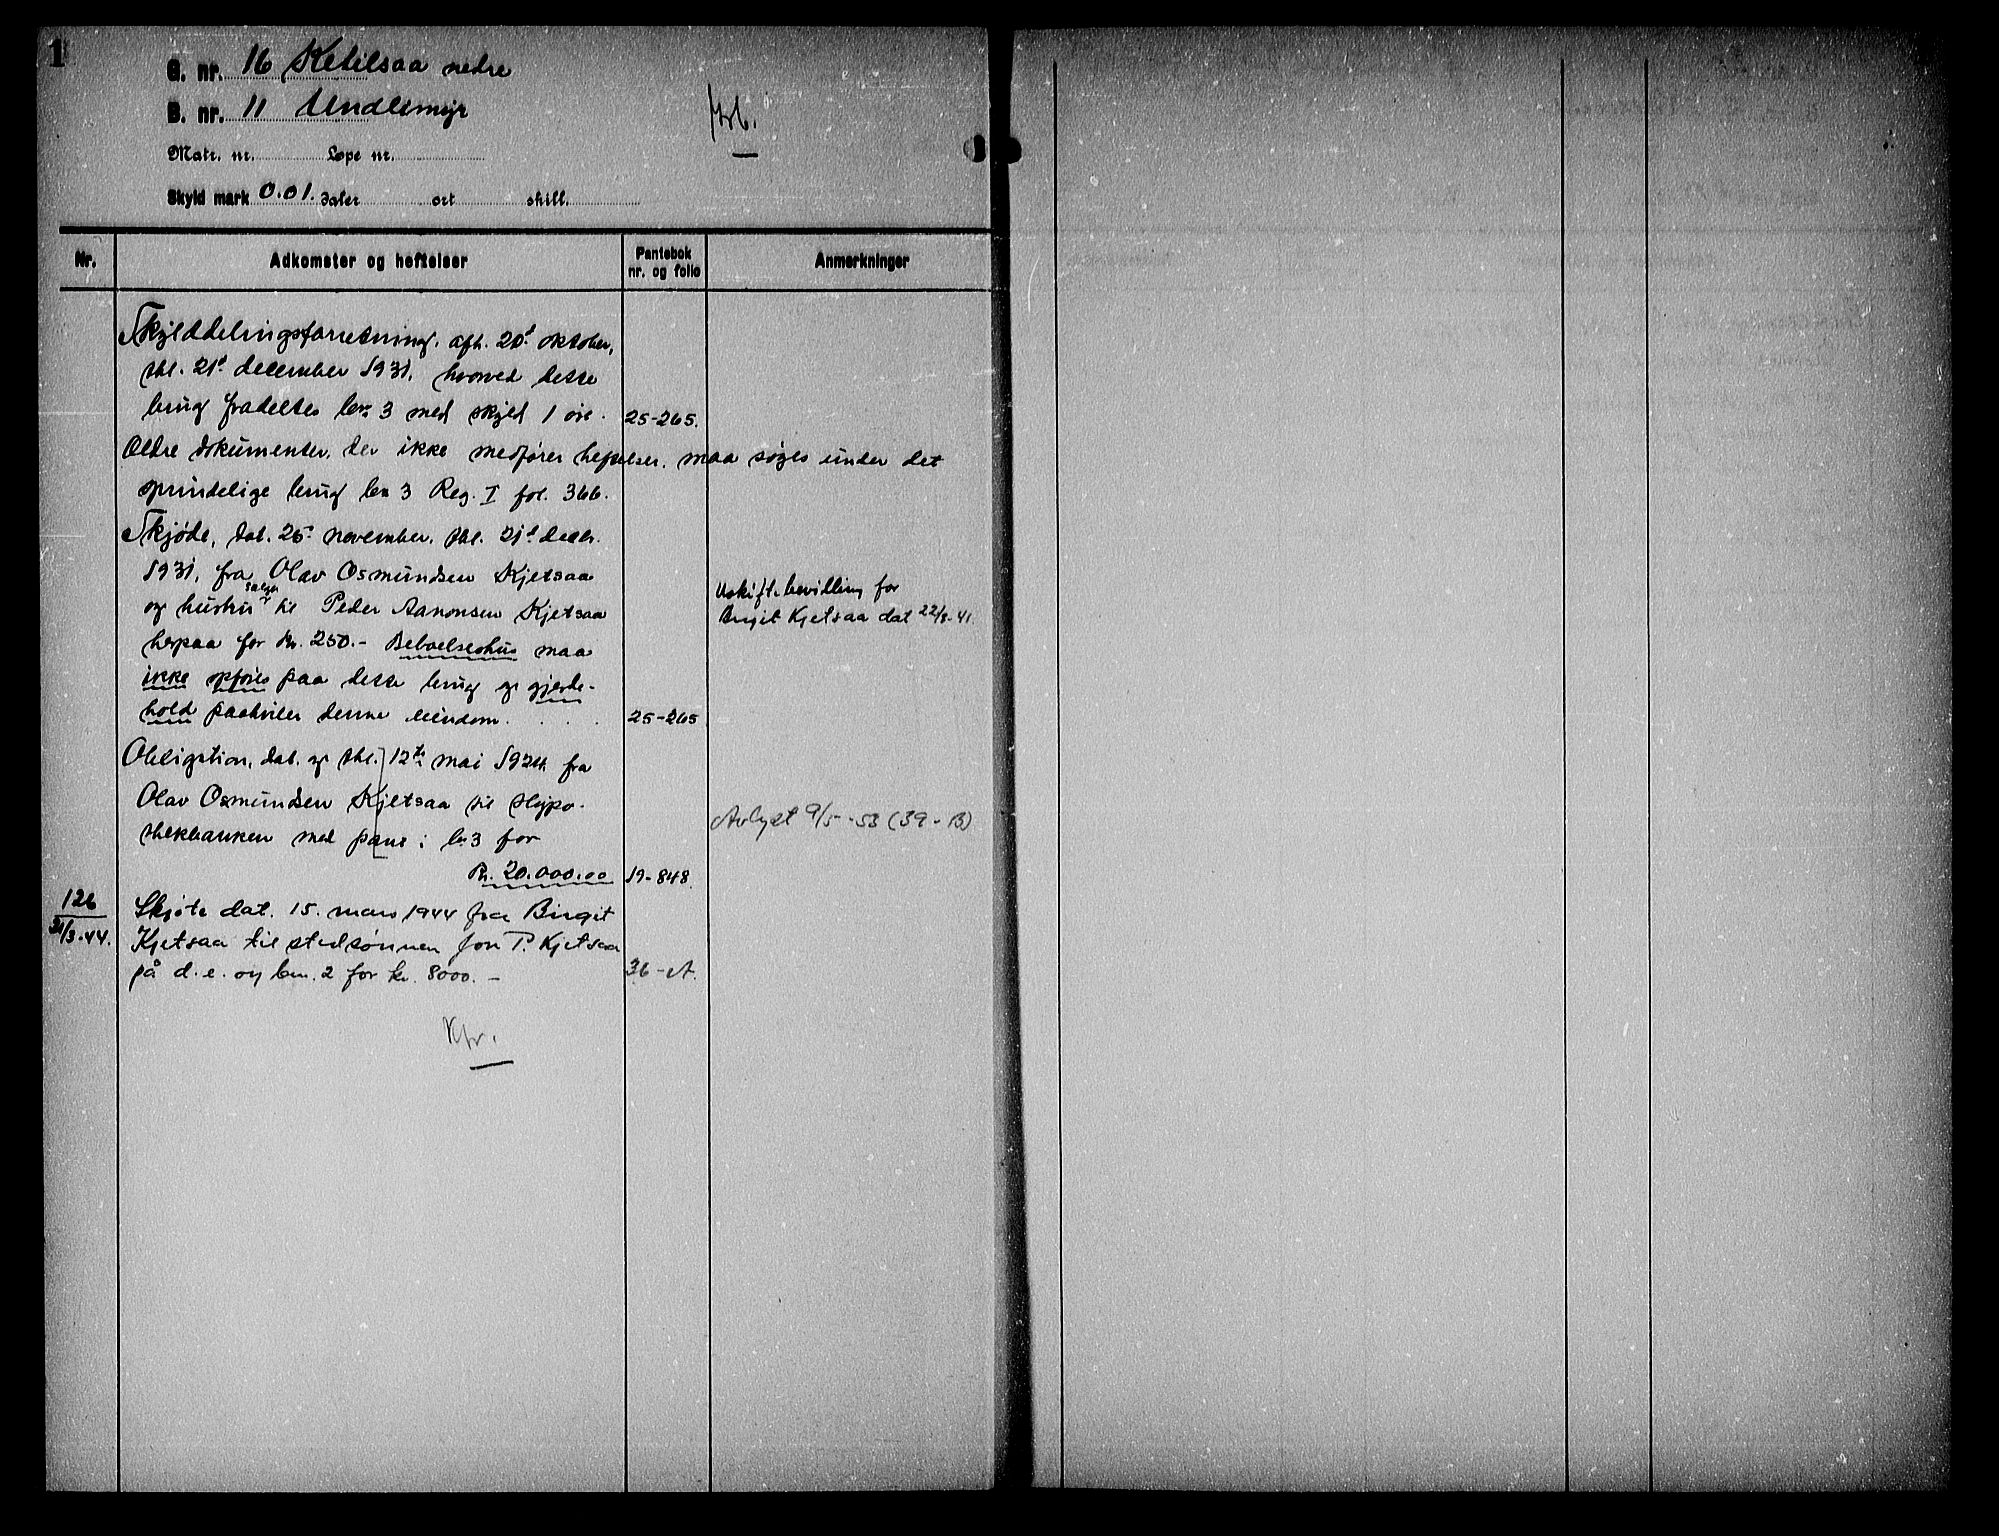 1
G. nr. 16 Ketilsaa nedre
B. nr. 11 Undlemyr
Matr. nr. Løpe nr.
Skyld mark 0.01. Daler ort skill.
Nr. Adkomster og heftelser Pantebok nr. og folio Anmerkninger
Skylddelingsforretning, afh. 20d oktober,
tbl. 21d december 1931, hvorved dette
brug fradeltes bn 3 med skyld 1 øre. 25-265.
Ældre dokumenter, der ikke medfører heftelser, maa søges under det
oprindelige brug bn 3 Reg. I fol. 366.
Skjøde, dat. 25 november, tbl. 21d decbr.
1931, fra Olav Osmundsen Kjetsaa
og hustru Salgen til Peder Aanonsen Kjetsaa
herpaa for Kr. 250.- Beboelseshus maa
ikke opføres paa dette brug og gjerde-
hold paahviler denne eiendom. 25-265
Uskiftebevilling for
Birgit Kjetsaa dat 22/8-41.
Obligation, dat. og tbl. 12te mai 1924 fra
Olav Osmundsen Kjetsaa til Hypo-
thekbanken med pant i bn 3 for
Kr. 20.000.00 19-848.
Avlyst 9/5-53 (39-B)
126
31/3-44.
Skjøte dat. 15. mars 1944 fra Birgit
Kjetsaa til stedsønnen Jon P. Kjetsaa
på d.e. og bnr. 2 for kr. 8000.- 36-A.
Kfr.